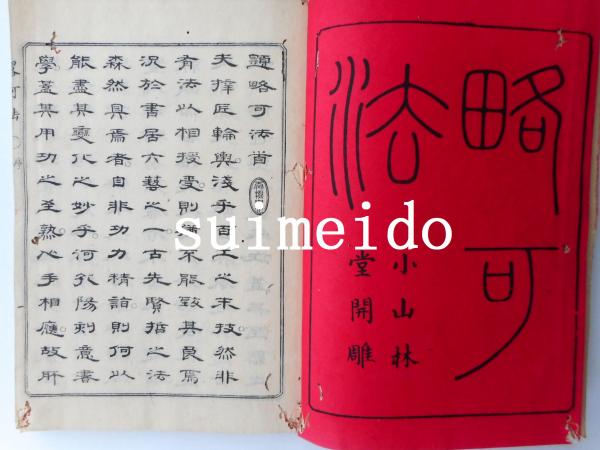 略可
法
小山林
堂開雕
題略可法首
夫梓匠輪輿淺乎百工之末技然非
有法以相授受則不能致其良焉
況於書居六藝之一古先賢哲之法
森然具焉者自非功力精詣則何以
能盡其變化之妙乎河孔陽刻意書
學蓋其用功之至熟心手相應故肝
略可法 序
suimeido